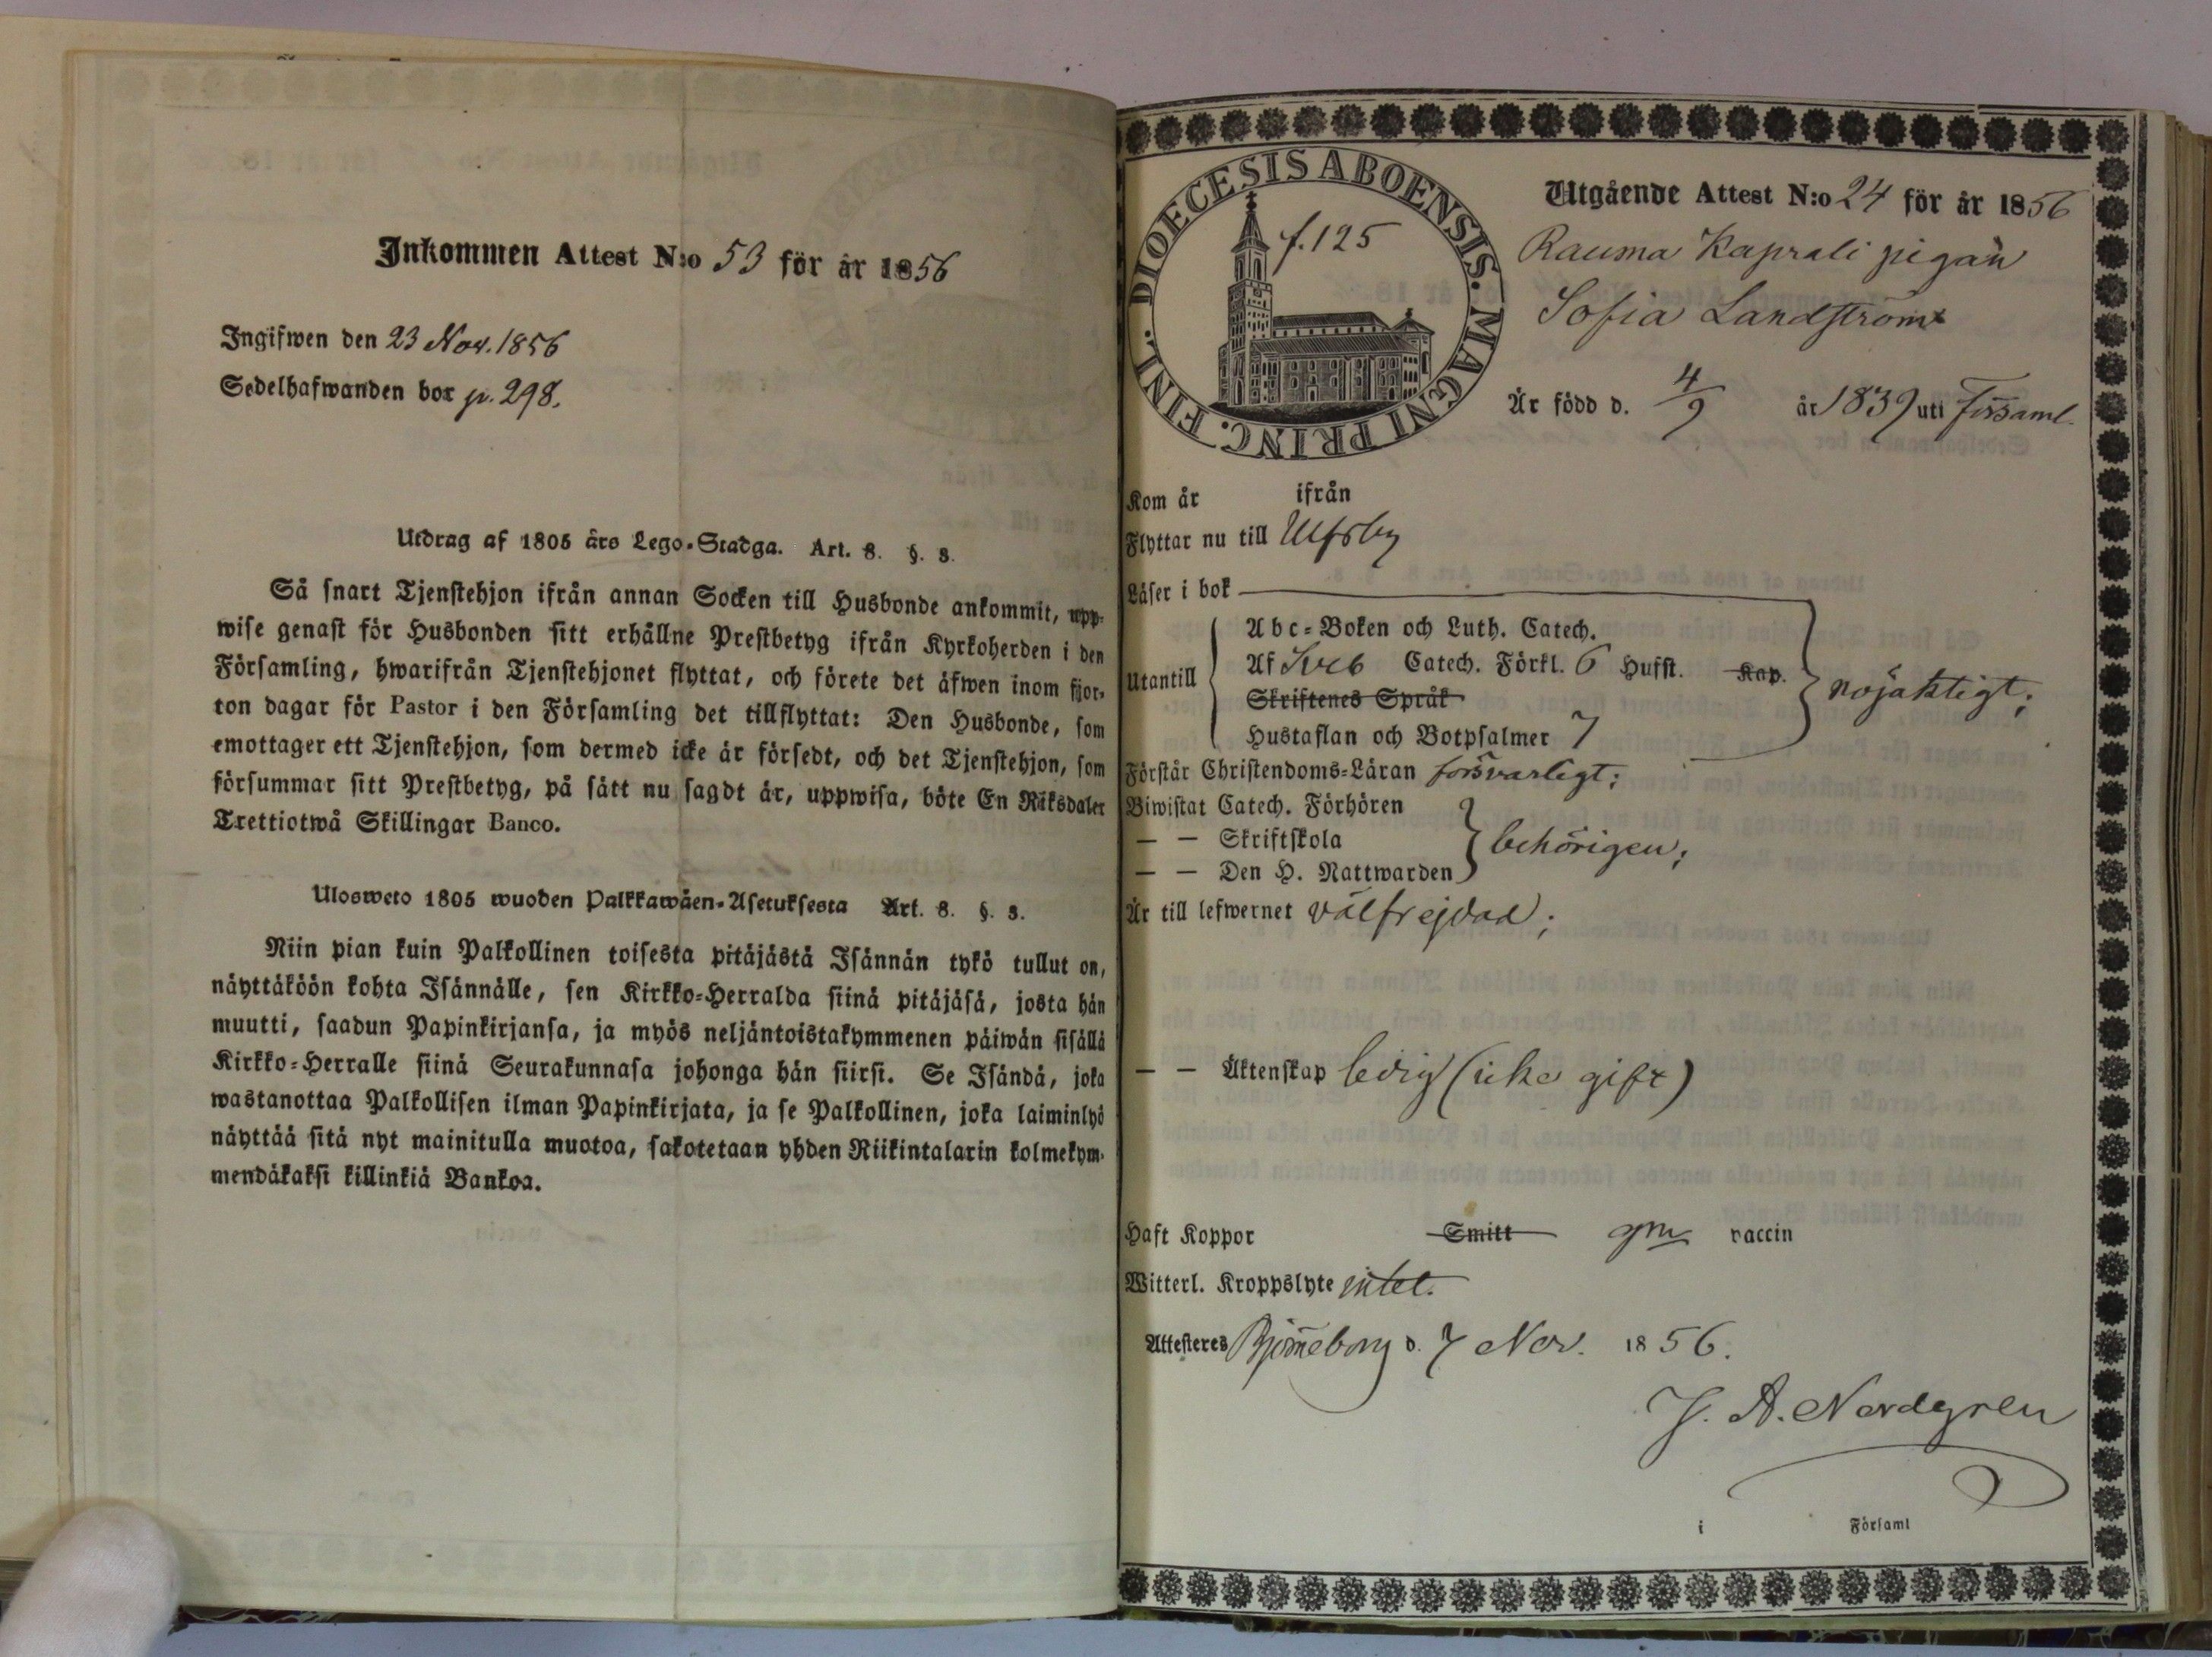 Inkommen Attest N:o 53 för år 1856
Ingifwen den 23 Nov. 1856
Sedelhafwanden bor p. 298.
Utdrag af 1805 års Lego-Stadga. Art. 8. §. 8.
Så snart Tjenstehjon ifrån annan Socken till Husbonde ankommit, upp-
wise genast för Husbonden sitt erhållne Prestbetyg ifrån Kyrkoherden i den
Församling, hwarifrån Tjenstehjonet flyttat, och förete det äfwen inom fjor-
ton dagar för Pastor i den Församling det tillflyttat: Den Husbonde, som
emottager ett Tjenstehjon, som dermed icke är försedt, och det Tjenstehjon, som
försummar sitt Prestbetyg, på sätt nu sagdt är, uppwisa, böte En Riksdaler
Trettiotwå Skillingar Banco.
Ulosweto 1805 wuoden Palkkawäen-Asetuksesta Art. 8. §. 8.
Niin pian kuin Palkollinen toisesta pitäjästä Isännän tykö tullut on,
näyttäköön kohta Isännälle, sen Kirkko-Herralda siinä pitäjäsä, josta hän
muutti, saadun Papinkirjansa, ja myös neljäntoistakymmenen päiwän sisällä
Kirkko-Herralle siinä Seurakunnasa johonga hän siirsi. Se Isändä, joka
wastanottaa Palkollisen ilman Papinkirjata, ja se Palkollinen, joka laiminlyö
näyttää sitä nyt mainitulla muotoa, sakotetaan yhden Riikintalarin kolmekym-
mendäkaksi killinkiä Bankoa.
DIOECESIS ABOENSIS. MAGNI PRINC. FINL.
f. 125
Utgående Attest N:o 24 för år 1856
Rauma Kaprali pigan
Sofia Landström
Är född d. 4/9 år 1839 uti Församl.
Kom år ifrån
Flyttar nu till Ulfsby
Läser i bok
Utantill
Abc-Boken och Luth. Catech.
Af Sveb Catech. Förkl. 6 Hufst. Kap.
Skriftenes Språk
Hustaflan och Botpsalmer 7
nöjaktigt;
Förstår Christendoms-Läran försvarligt;
Biwistat Catech. Förhören
— — Skriftskola
— — Den H. Nattwarden
behörigen;
Är till lefwernet välfrejdad;
— — Äktenskap ledig (icke gift)
Haft Koppor Smitt gm vaccin
Witterl. Kroppslyte intet.
Attesteres Björneborg d. 7 Nov. 1856.
J. A. Nordgren
i Församl